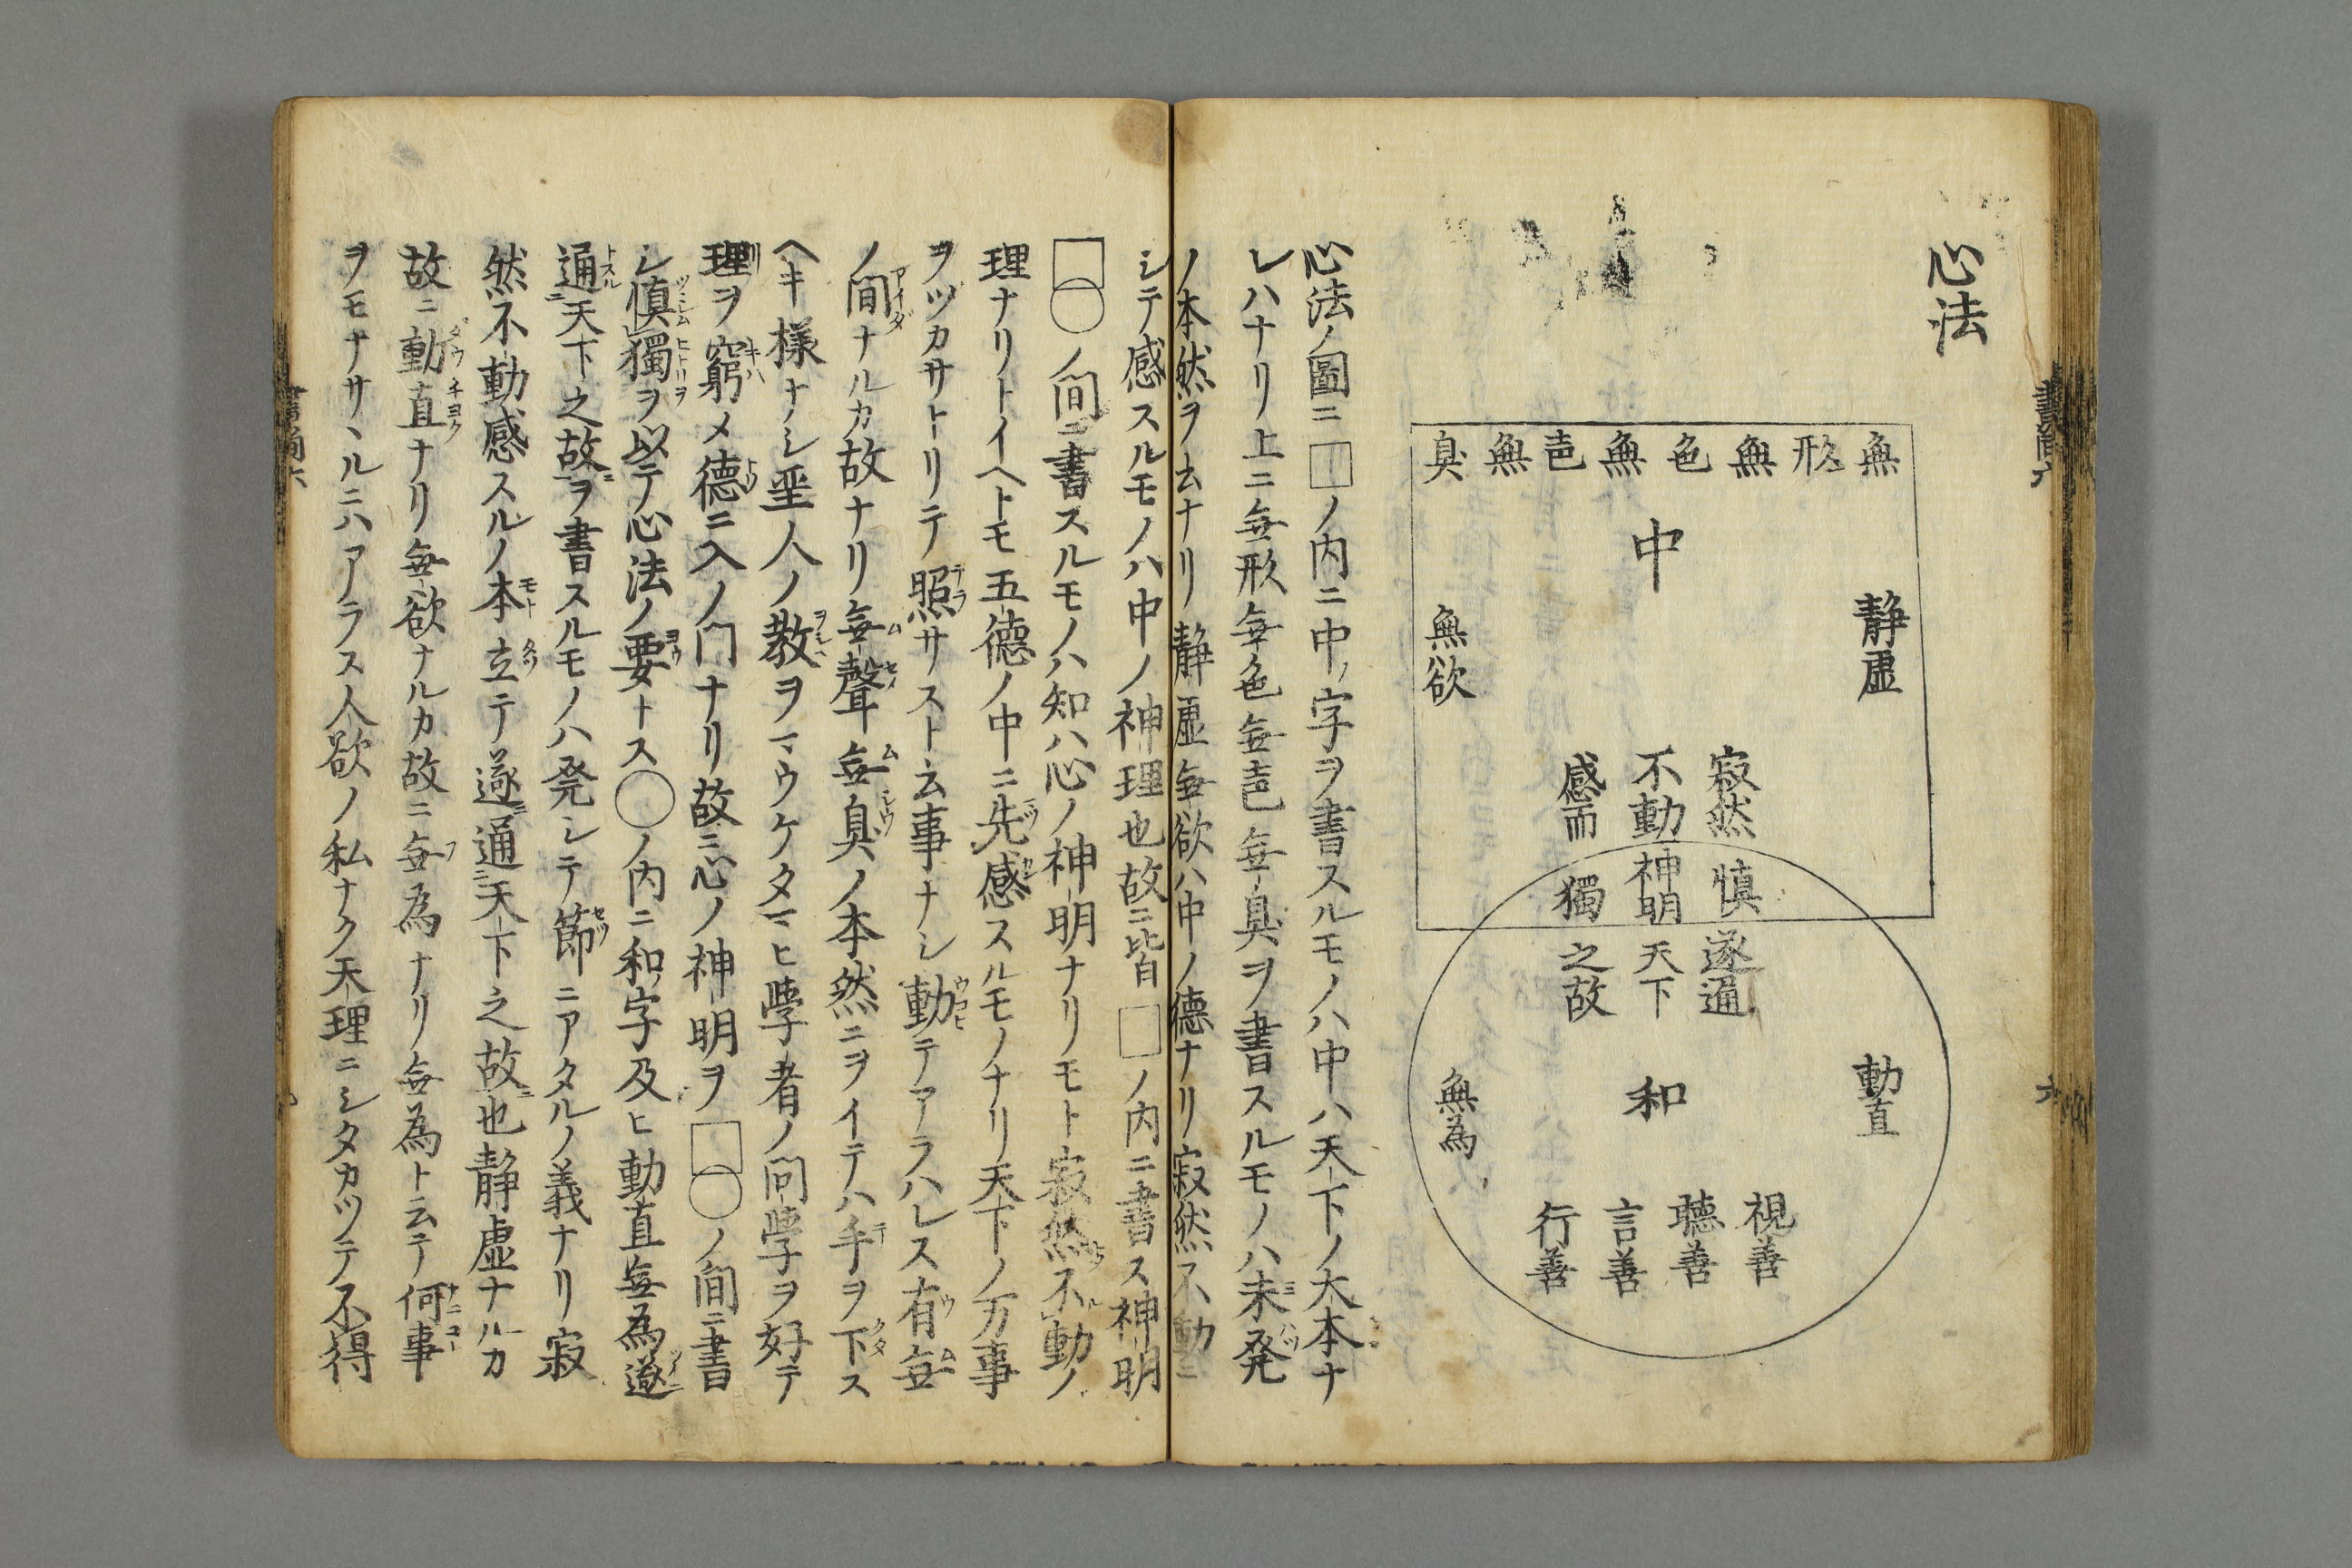 心法
無形無色無㖓無臭
中
静虚
無欲
寂然
不動
感而
慎
神明
獨
遂通
天下
之故
動直
和
無為
視善
聴善
言善
行善
心法ノ圖ニ□ノ内ニ中ノ字ヲ書スルモノハ中ハ天下ノ大本ナ
レハナリ上ニ無形無色無㖓無臭ヲ書スルモノハ未発
ノ本然ヲ云ナリ静虚無欲ハ中ノ德ナリ寂然不動ニ
シテ感スルモノハ中ノ神理也故ニ皆□ノ内ニ書ス神明
□○ノ間ニ書スルモノハ知ハ心ノ神明ナリモト寂然不動ノ
理ナリトイヘトモ五德ノ中ニ先感スルモノナリ天下ノ万事
ヲツカサトリテ照サスト云事ナシ動テアラハレス有無
ノ間ナルカ故ナリ無聲無臭ノ本然ニヲイテハ手ヲ下ス
ヘキ様ナシ聖人ノ教ヲマウケタマヒ學者ノ問學ヲ好テ
理ヲ窮メ德ニ入ノ門ナリ故ニ心ノ神明ヲ□○ノ間ニ書
シ慎獨ヲ以テ心法ノ要トス○ノ内ニ和字及ヒ動直無為遂
通天下之故ヲ書スルモノハ発シテ節ニアタルノ義ナリ寂
然不動感スルノ本立テ遂通天下之故也静虚ナルカ
故ニ動直ナリ無欲ナルカ故ニ無為ナリ無為ト云テ何事
ヲモナサヽルニハアラス人欲ノ私ナク天理ニシタカツテ不得